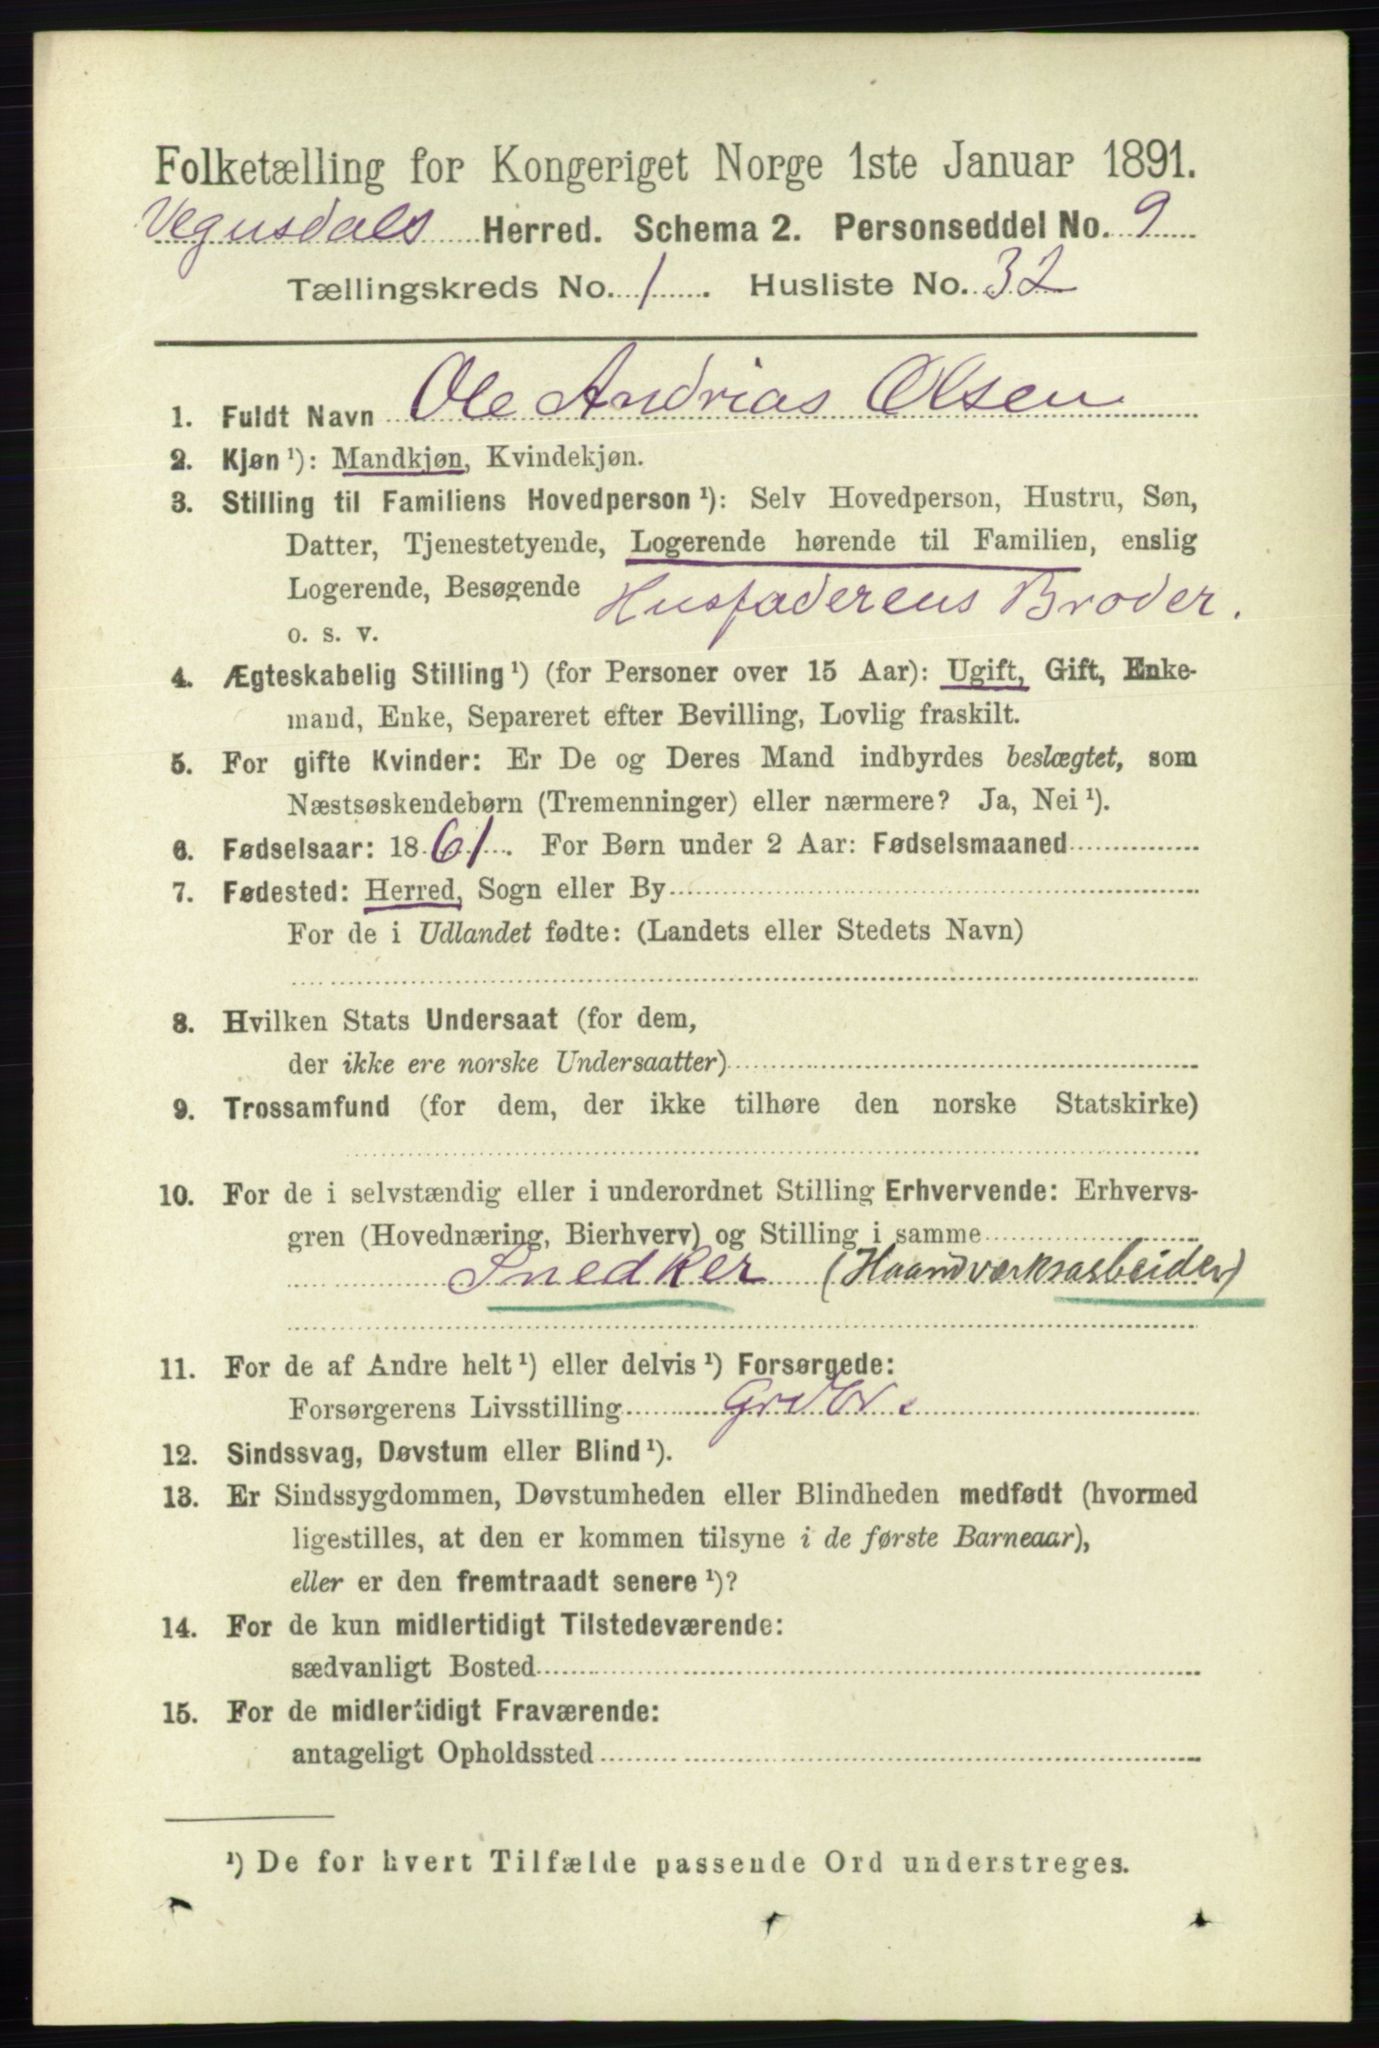 Folketælling for Kongeriget Norge 1ste Januar 1891.
Vegusdals Herred. Schema 2. Personseddel No. 9
Tællingskreds No. 1. Husliste No. 32
1. Fuldt Navn Ole Andrias Olsen
2. Kjøn ¹): Mandkjøn, Kvindekjøn.
3. Stilling til Familiens Hovedperson ¹): Selv Hovedperson, Hustru, Søn,
Datter, Tjenestetyende, Logerende hørende til Familien, enslig
Logerende, Besøgende Husfaderens Broder.
o. s. v.
4. Ægteskabelig Stilling ¹) (for Personer over 15 Aar): Ugift, Gift, Enke-
mand, Enke, Separeret efter Bevilling, Lovlig fraskilt.
5. For gifte Kvinder: Er De og Deres Mand indbyrdes beslægtet, som
Næstsøskendebørn (Tremenninger) eller nærmere? Ja, Nei ¹).
6. Fødselsaar: 1861. For Børn under 2 Aar: Fødselsmaaned
7. Fødested: Herred, Sogn eller By
For de i Udlandet fødte: (Landets eller Stedets Navn)
8. Hvilken Stats Undersaat (for dem,
der ikke ere norske Undersaatter)
9. Trossamfund (for dem, der ikke tilhøre den norske Statskirke)
10. For de i selvstændig eller i underordnet Stilling Erhvervende: Erhvervs-
gren (Hovednæring, Bierhverv) og Stilling i samme
Snedker (Haandværksarbeider)
11. For de af Andre helt ¹) eller delvis ¹) Forsørgede:
Forsørgerens Livsstilling
12. Sindssvag, Døvstum eller Blind ¹).
13. Er Sindssygdommen, Døvstumheden eller Blindheden medfødt (hvormed
ligestilles, at den er kommen tilsyne i de første Barneaar),
eller er den fremtraadt senere ¹)?
14. For de kun midlertidigt Tilstedeværende:
sædvanligt Bosted
15. For de midlertidigt Fraværende:
antageligt Opholdssted
¹) De for hvert Tilfælde passende Ord understreges.